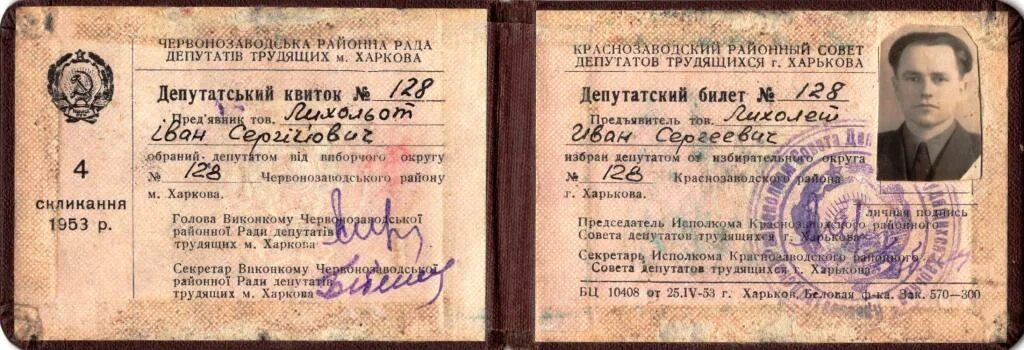 4
скликання
1953 р.
ЧЕРВОНОЗАВОДСЬКА РАЙОННА РАДА
ДЕПУТАТІВ ТРУДЯЩИХ м. ХАРКОВА
Депутатський квиток № 128
Пред'явник тов. Лихольот
Іван Сергійович
обраний депутатом від виборчого округу
№ 128 Червонозаводського району
м. Харкова.
Голова Виконкому Червонозаводської
районної Ради депутатів
трудящих м. Харкова
Секретар Виконкому Червонозаводської
районної Ради депутатів
трудящих м. Харкова
КРАСНОЗАВОДСКИЙ РАЙОННЫЙ СОВЕТ
ДЕПУТАТОВ ТРУДЯЩИХСЯ г. ХАРЬКОВА
Депутатский билет № 128
Предъявитель тов. Лихолет
Иван Сергеевич
избран депутатом от избирательного округа
№ 128 Краснозаводского района
г. Харькова.
личная подпись
Председатель Исполкома Краснозаводского районного
Совета депутатов трудящихся г. Харькова
Секретарь Исполкома Краснозаводского районного
Совета депутатов трудящихся г. Харькова
БЦ 10408 от 25.IV-53 г. Харьков, Беловая ф-ка. Зак. 570—300